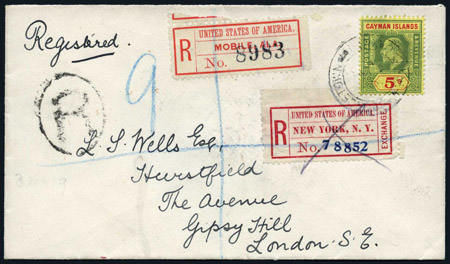 Registered.
UNITED STATES OF AMERICA.
R
MOBILE, ALA.
No. 8983
CAYMAN ISLANDS
POSTAGE
REVENUE
5/-
9
R
UNITED STATES OF AMERICA.
R
NEW YORK, N. Y.
No. 78852
EXCHANGE
L. S. Wells Esq.,
Hurstfield
The Avenue
Gipsy Hill
London. S.E.